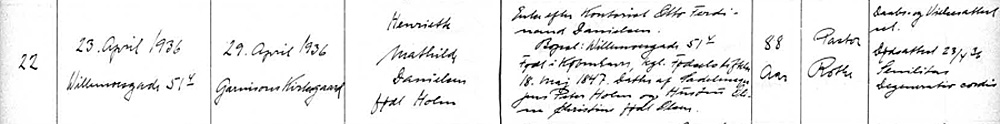 22
23. April 1936
Willemoesgade 51⁴
29. April 1936
Garnisons Kirkegaard
Henriette
Mathilde
Danielsen
født Holm
Enke efter Kontorist Otto Ferdi-
nand Danielsen.
Bopæl: Willemoesgade 51⁴
Født i København, Kgl. Fødselsstiftelse
18. Maj 1847. Datter af Sadelmager
Jens Peter Holm og Hustru Eli-
ne Christine født Olsen.
88
Aar
Pastor
Rothe
Daabs- og Vielsesattest
set.
Dødsattest 23/4 36
Senilitas
Degeneratio cordis